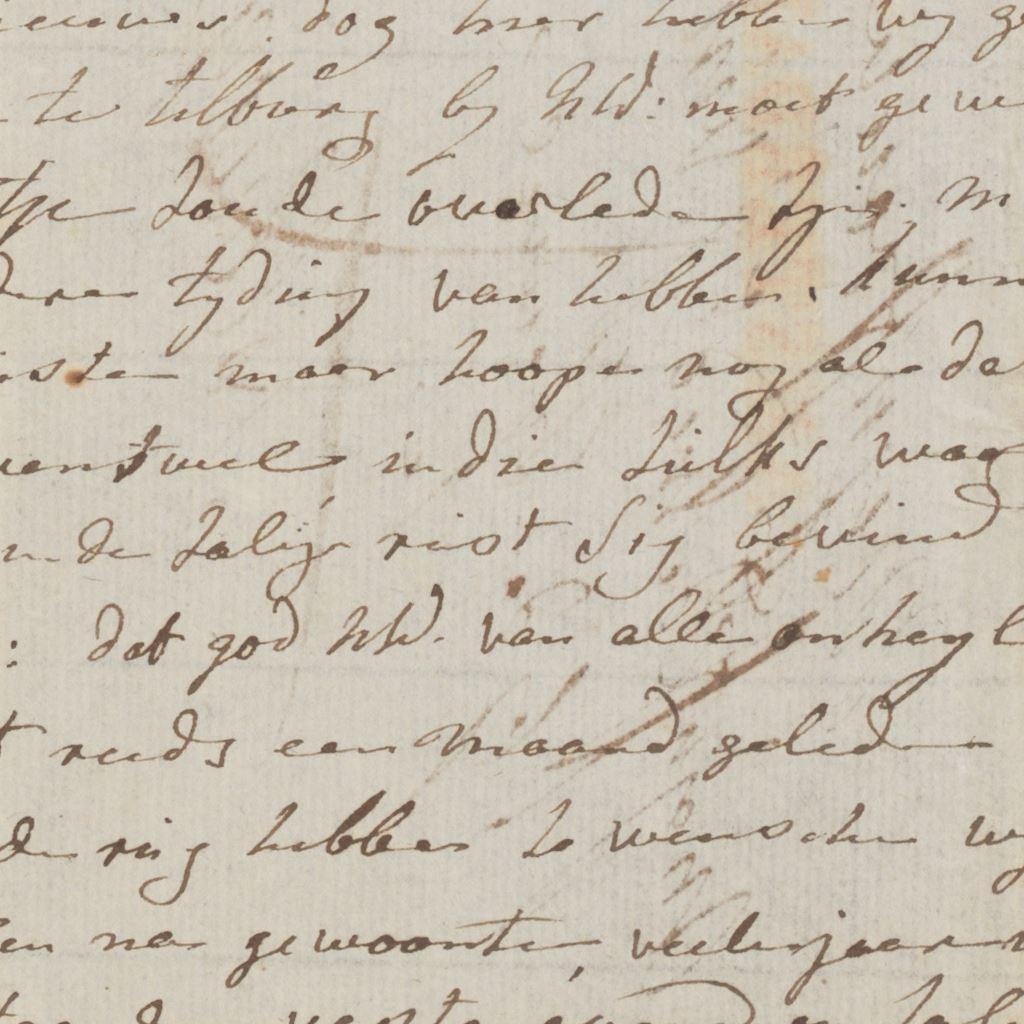 dog hier hebben wy
te tilburg by UWd: moet gewe
tje zoude overleden zyn. M
dere tyding van hebben. kunn
maar hoope nog al de
wentwel indien zulks waar
in de zalige rust Sig bevind
: dat god UWd. van alle onheyl
t reeds een maand geleden
hebben zo wenschen wy
en na gewoonte, veele jaaren